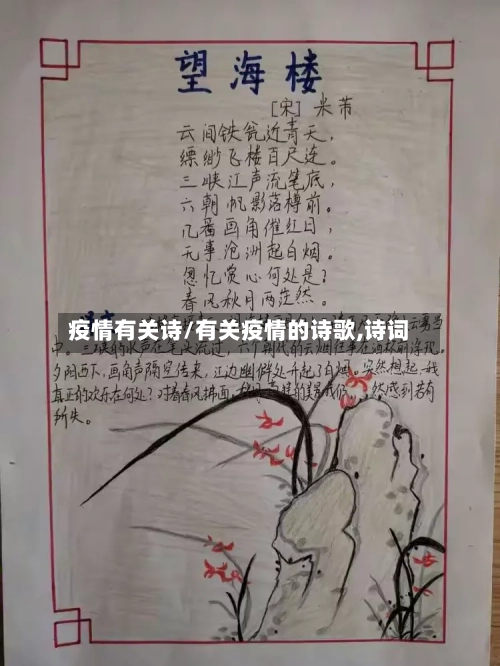 望海楼
[宋] 米芾
云间铁瓮近青天，
缥缈飞楼百尺连。
三峡江声流笔底，
六朝帆影落樽前。
几番画角催红日，
无事沧洲起白烟。
忽忆赏心何处是？
春风秋月两茫然。
疫情有关诗/有关疫情的诗歌,诗词
中。三峡的水声在笔头流过，六个朝代的云烟往事在酒杯前浮现。
夕阳西下，画角声隔空传来，江边幽僻处升起了白烟。突然想起一我
真正的欢乐在何处？对着春风拂面，
然感到若有
所失。